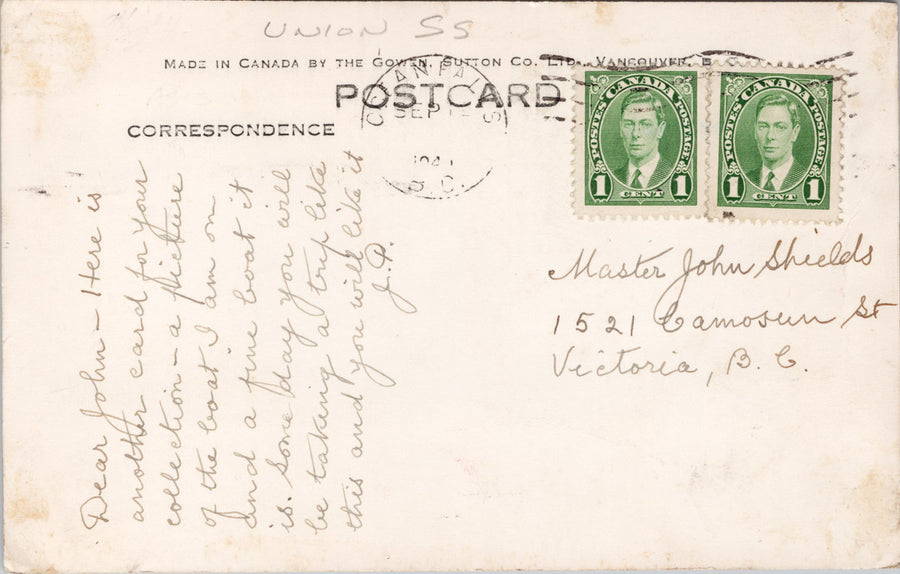 UNION SS
MADE IN CANADA BY THE GOWEN, SUTTON CO. LTD., VANCOUVER, B
POSTCARD
CORRESPONDENCE
OCEAN FALLS
SEP
B.C.
POSTES CANADA POSTAGE
1 CENT 1
POSTES CANADA POSTAGE
1 CENT 1
Dear John – Here is
another card for your
collection – a picture
of the boat I am on
and a fine boat it
is. Some day you will
be taking a trip like
this and you will like it
J.P.
Master John Shields
1521 Camosun St
Victoria, B.C.